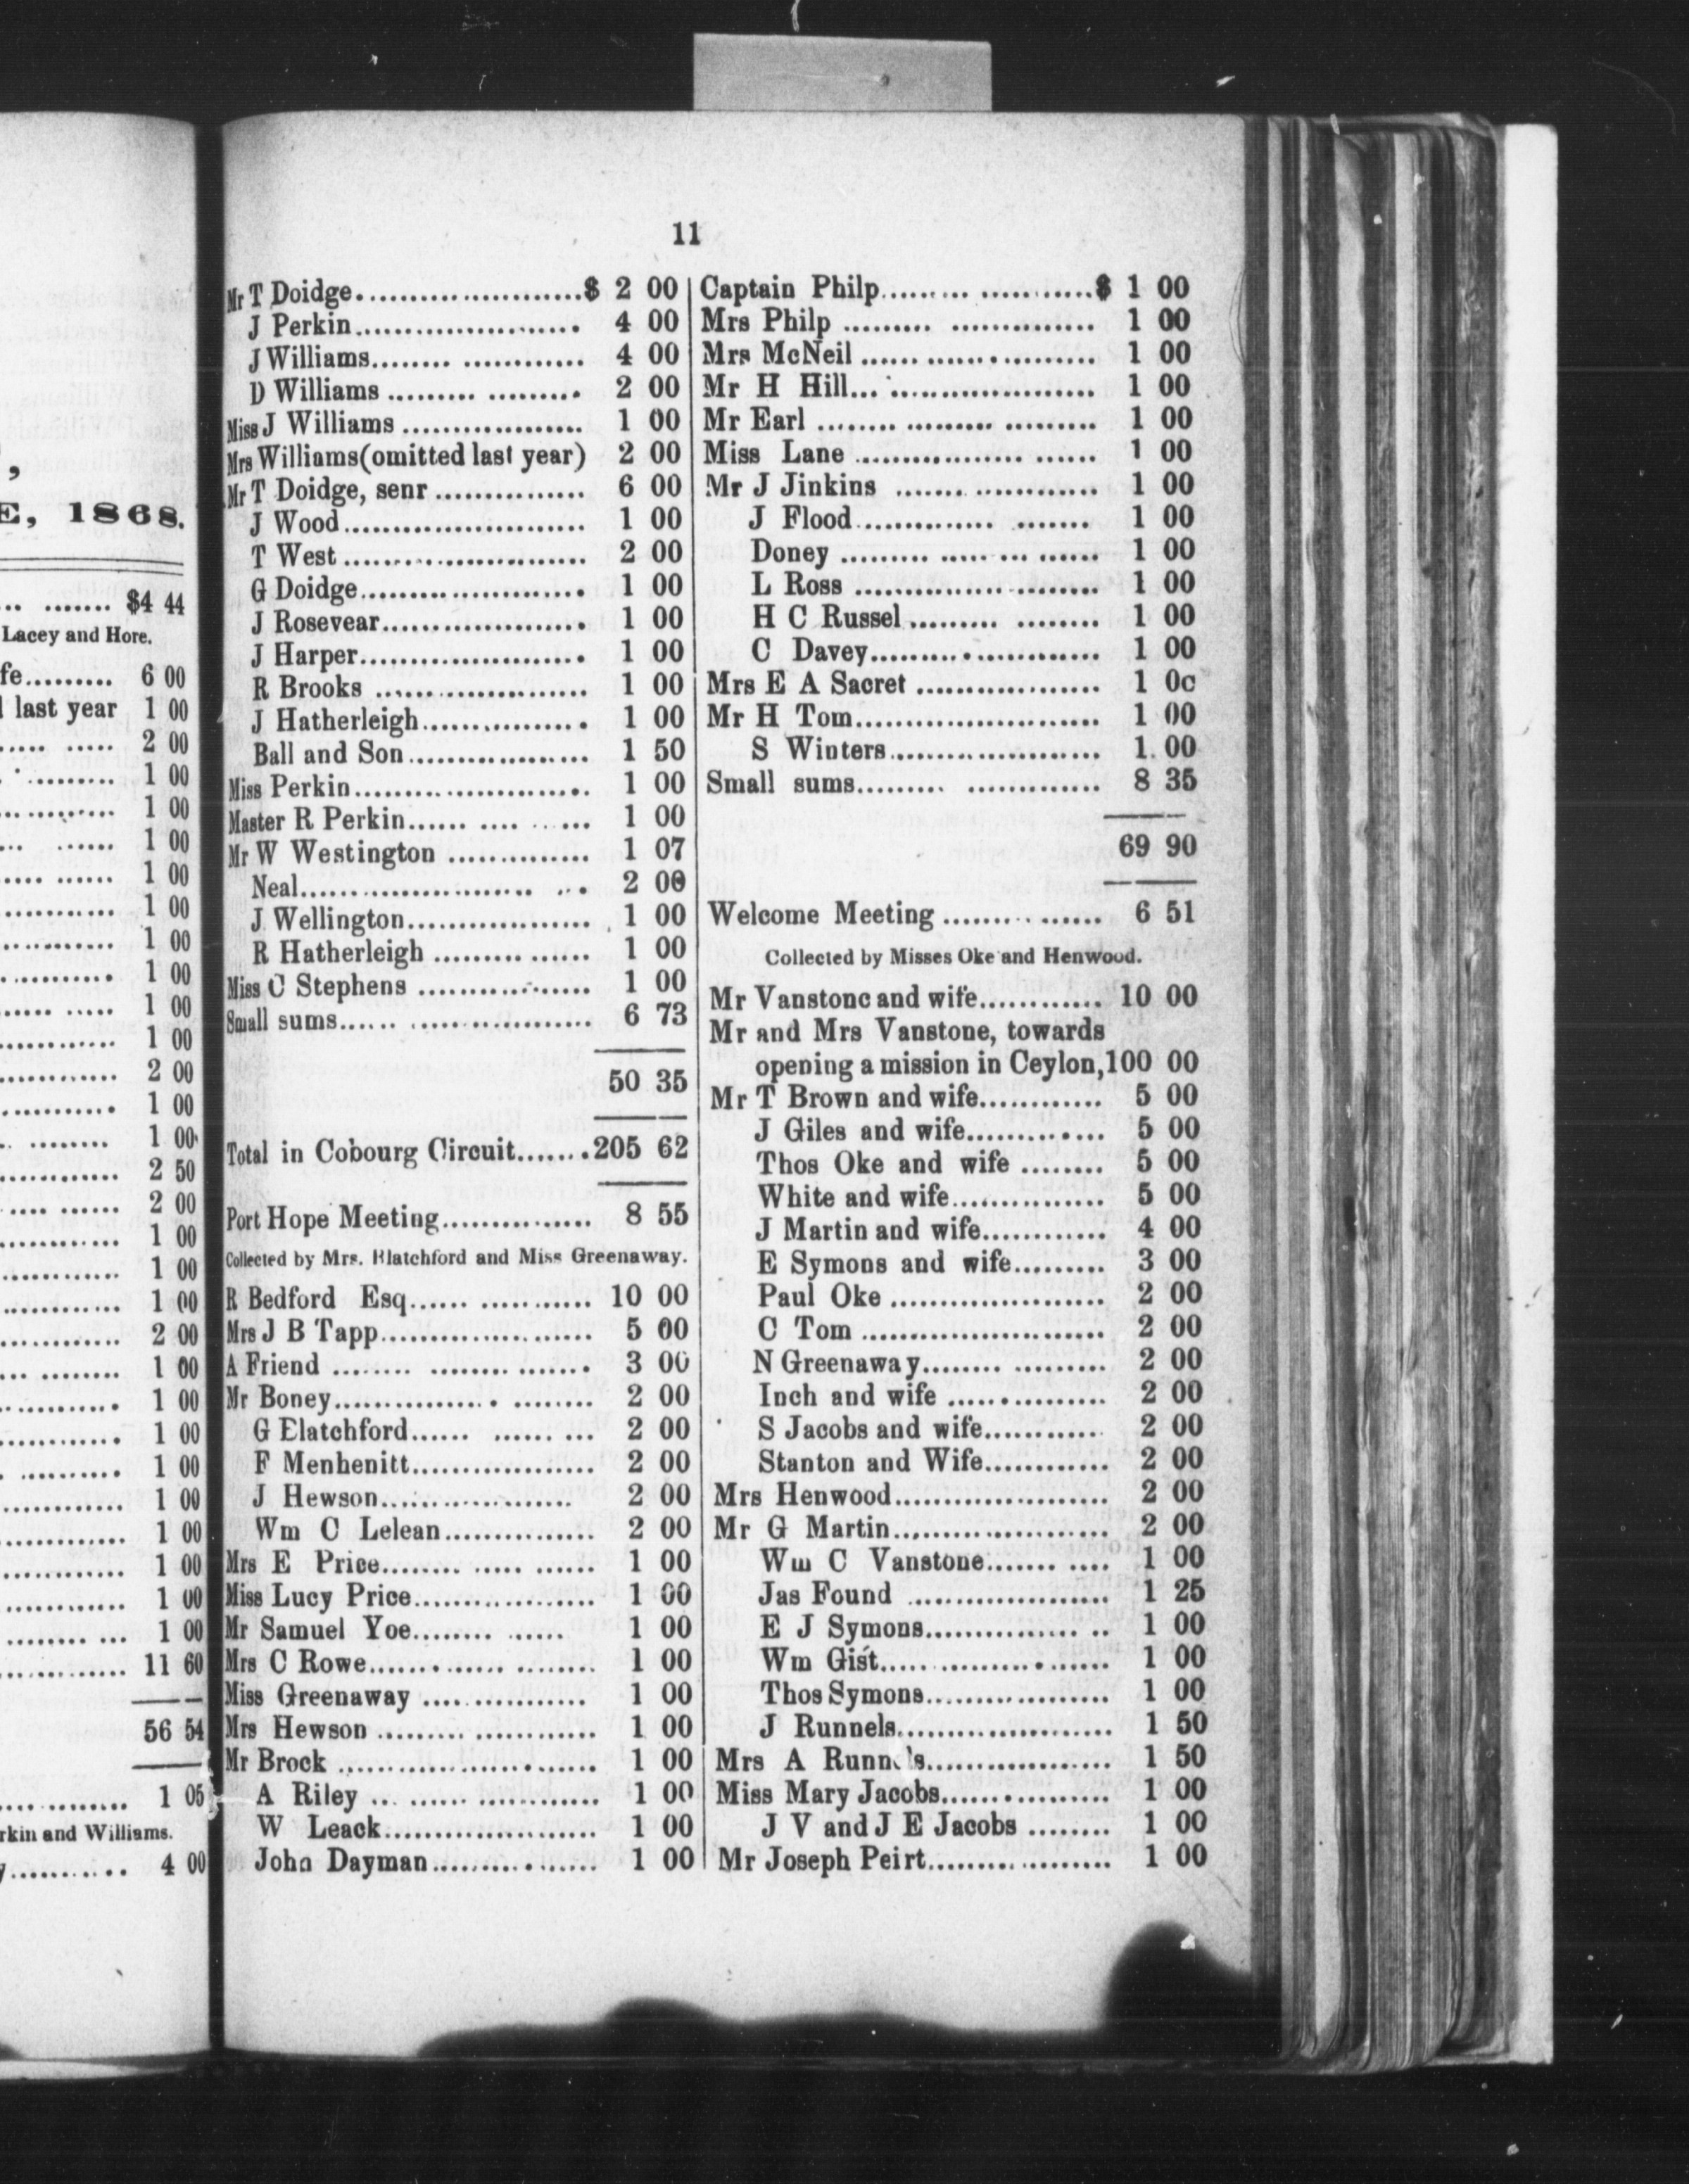 ,
E, 1868.
$4 44
Lacey and Hore.
fe......... 6 00
last year 1 00
2 00
1 00
1 00
1 00
1 00
1 00
1 00
1 00
1 00
1 00
2 00
1 00
1 00
2 50
2 00
1 00
1 00
1 00
2 00
1 00
1 00
1 00
1 00
1 00
1 00
1 00
1 00
1 00
11 60
56 54
1 05
rkin and Williams.
4 00
11
Mr T Doidge........................$ 2 00
J Perkin...................... 4 00
J Williams........ ............ 4 00
D Williams ......... ......... 2 00
Miss J Williams .................. 1 00
Mrs Williams(omitted last year) 2 00
Mr T Doidge, senr ............... 6 00
J Wood........................ 1 00
T West ........................ 2 00
G Doidge...................... 1 00
J Rosevear.................... 1 00
J Harper...................... 1 00
R Brooks ..................... 1 00
J Hatherleigh................ 1 00
Ball and Son.................. 1 50
Miss Perkin....................... 1 00
Master R Perkin...... .... .. ... 1 00
Mr W Westington .............. 1 07
Neal....................... ... 2 00
J Wellington.................. 1 00
R Hatherleigh ......... ...... 1 00
Miss C Stephens ................. 1 00
Small sums...... .................. 6 73
50 35
Total in Cobourg Circuit.......205 62
Port Hope Meeting............... 8 55
Collected by Mrs. Blatchford and Miss Greenaway.
R Bedford Esq...... ........... 10 00
Mrs J B Tapp..................... 5 00
A Friend ........ ........ ....... 3 00
Mr Boney................ ........ 2 00
G Elatchford...... ...... ... 2 00
F Menhenitt.................. 2 00
J Hewson................... 2 00
Wm C Lelean............... 2 00
Mrs E Price........ ..... ...... 1 00
Miss Lucy Price.................. 1 00
Mr Samuel Yoe........ ...... 1 00
Mrs C Rowe............. ........ 1 00
Miss Greenaway ................ 1 00
Mrs Hewson ......... ............ 1 00
Mr Brock ......................... 1 00
A Riley ... ...... ............ 1 00
W Leack..................... 1 00
John Dayman................ 1 00
Captain Philp......... ...........$ 1 00
Mrs Philp ......... .............. 1 00
Mrs McNeil ...... ................ 1 00
Mr H Hill... .................... 1 00
Mr Earl ........ ......... ......... 1 00
Miss Lane ................ ...... 1 00
Mr J Jinkins ....... ............ 1 00
J Flood.............. ....... 1 00
Doney ......... ..... ... ...... 1 00
L Ross ........................ 1 00
H C Russel ......... ........ 1 00
C Davey....................... 1 00
Mrs E A Sacret .................. 1 0c
Mr H Tom........................ 1 00
S Winters..................... 1. 00
Small sums......... ............. 8 35
69 90
Welcome Meeting ......... ...... 6 51
Collected by Misses Oke and Henwood.
Mr Vanstonc and wife............ 10 00
Mr and Mrs Vanstone, towards
opening a mission in Ceylon,100 00
Mr T Brown and wife............ 5 00
J Giles and wife.............. 5 00
Thos Oke and wife ........ 5 00
White and wife............... 5 00
J Martin and wife............ 4 00
E Symons and wife......... 3 00
Paul Oke ..................... 2 00
C Tom ........................ 2 00
N Greenaway........ ......... 2 00
Inch and wife ................ 2 00
S Jacobs and wife............ 2 00
Stanton and Wife............ 2 00
Mrs Henwood..................... 2 00
Mr G Martin..................... 2 00
Wm C Vanstone....... .... 1 00
Jas Found .................... 1 25
E J Symons............... .. 1 00
Wm Gist....................... 1 00
Thos Symons.................. 1 00
J Runnels..................... 1 50
Mrs A Runn 's.................. 1 50
Miss Mary Jacobs................ 1 00
J V and J E Jacobs ........ 1 00
Mr Joseph Peirt.................. 1 00